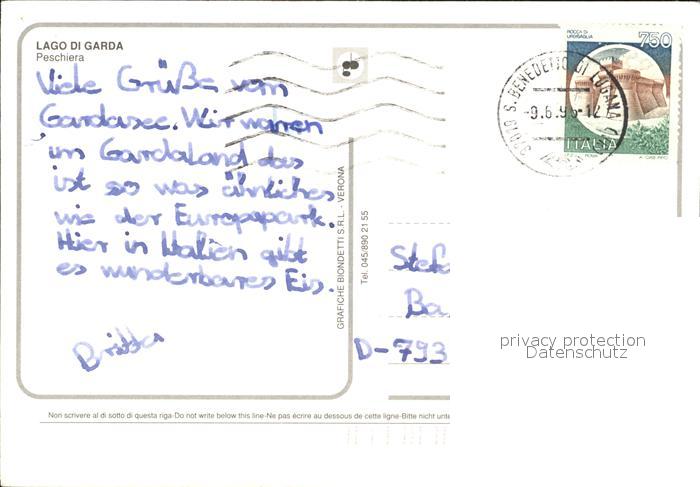 LAGO DI GARDA
Peschiera
Viele Grüße vom
Gardasee. Wir waren
im Gardaland das
ist so was ähnliches
wie der Europapark.
Hier in Italien gibt
es wunderbares Eis.
Britta
GRAFICHE BIONDETTI S.R.L. - VERONA
Tel. 045/890 21 55
ROCCA DI
URBISAGLIA
750
ITALIA
S. BENEDETTO DI LUGANA
37010
Stefa
Ba
D-793
privacy protection
Datenschutz
Non scrivere al di sotto di questa riga-Do not write below this line-Ne pas écrire au dessous de cette ligne-Bitte nicht unte